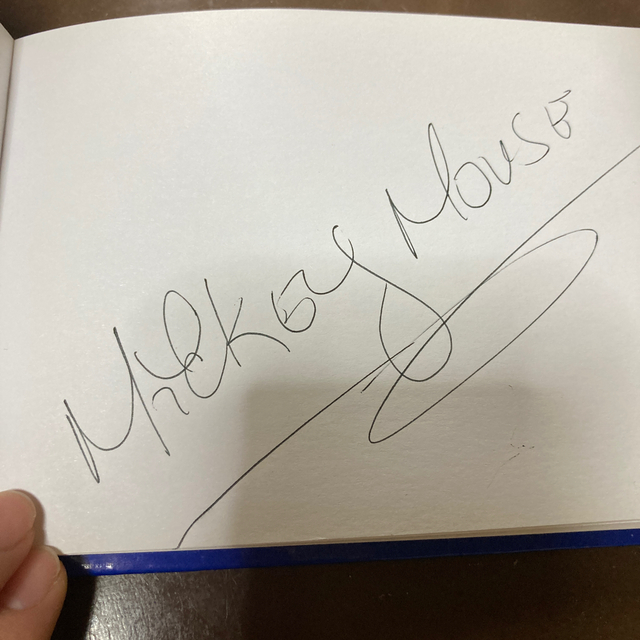 Mickey Mouse